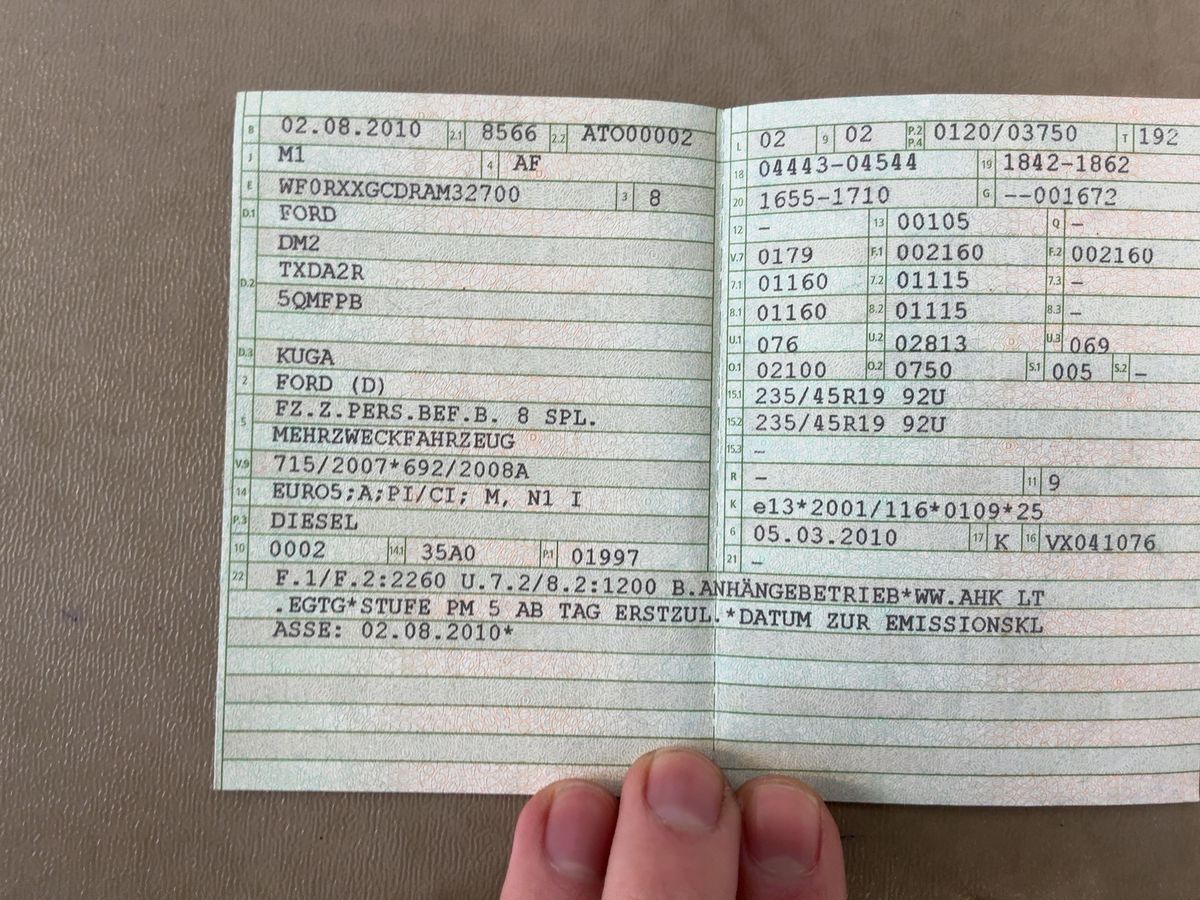 B 02.08.2010 2.1 8566 2.2 ATO00002
J M1 4 AF
E WF0RXXGCDRAM32700 3 8
D.1 FORD
DM2
D.2 TXDA2R
5QMFPB
D.3 KUGA
2 FORD (D)
5 FZ.Z.PERS.BEF.B. 8 SPL.
MEHRZWECKFAHRZEUG
V.9 715/2007*692/2008A
14 EURO5;A;PI/CI; M, N1 I
P.3 DIESEL
10 0002 14.1 35A0 P.1 01997
L 02 9 02 P.2 P.4 0120/03750 T 192
18 04443-04544 19 1842-1862
20 1655-1710 G --001672
12 - 13 00105 Q -
V.7 0179 F.1 002160 F.2 002160
7.1 01160 7.2 01115 7.3 -
8.1 01160 8.2 01115 8.3 -
U.1 076 U.2 02813 U.3 069
O.1 02100 O.2 0750 S.1 005 S.2 -
15.1 235/45R19 92U
15.2 235/45R19 92U
15.3 -
R - 11 9
K e13*2001/116*0109*25
6 05.03.2010 17 K 16 VX041076
21 -
22 F.1/F.2:2260 U.7.2/8.2:1200 B.ANHÄNGEBETRIEB*WW.AHK LT
.EGTG*STUFE PM 5 AB TAG ERSTZUL.*DATUM ZUR EMISSIONSKL
ASSE: 02.08.2010*